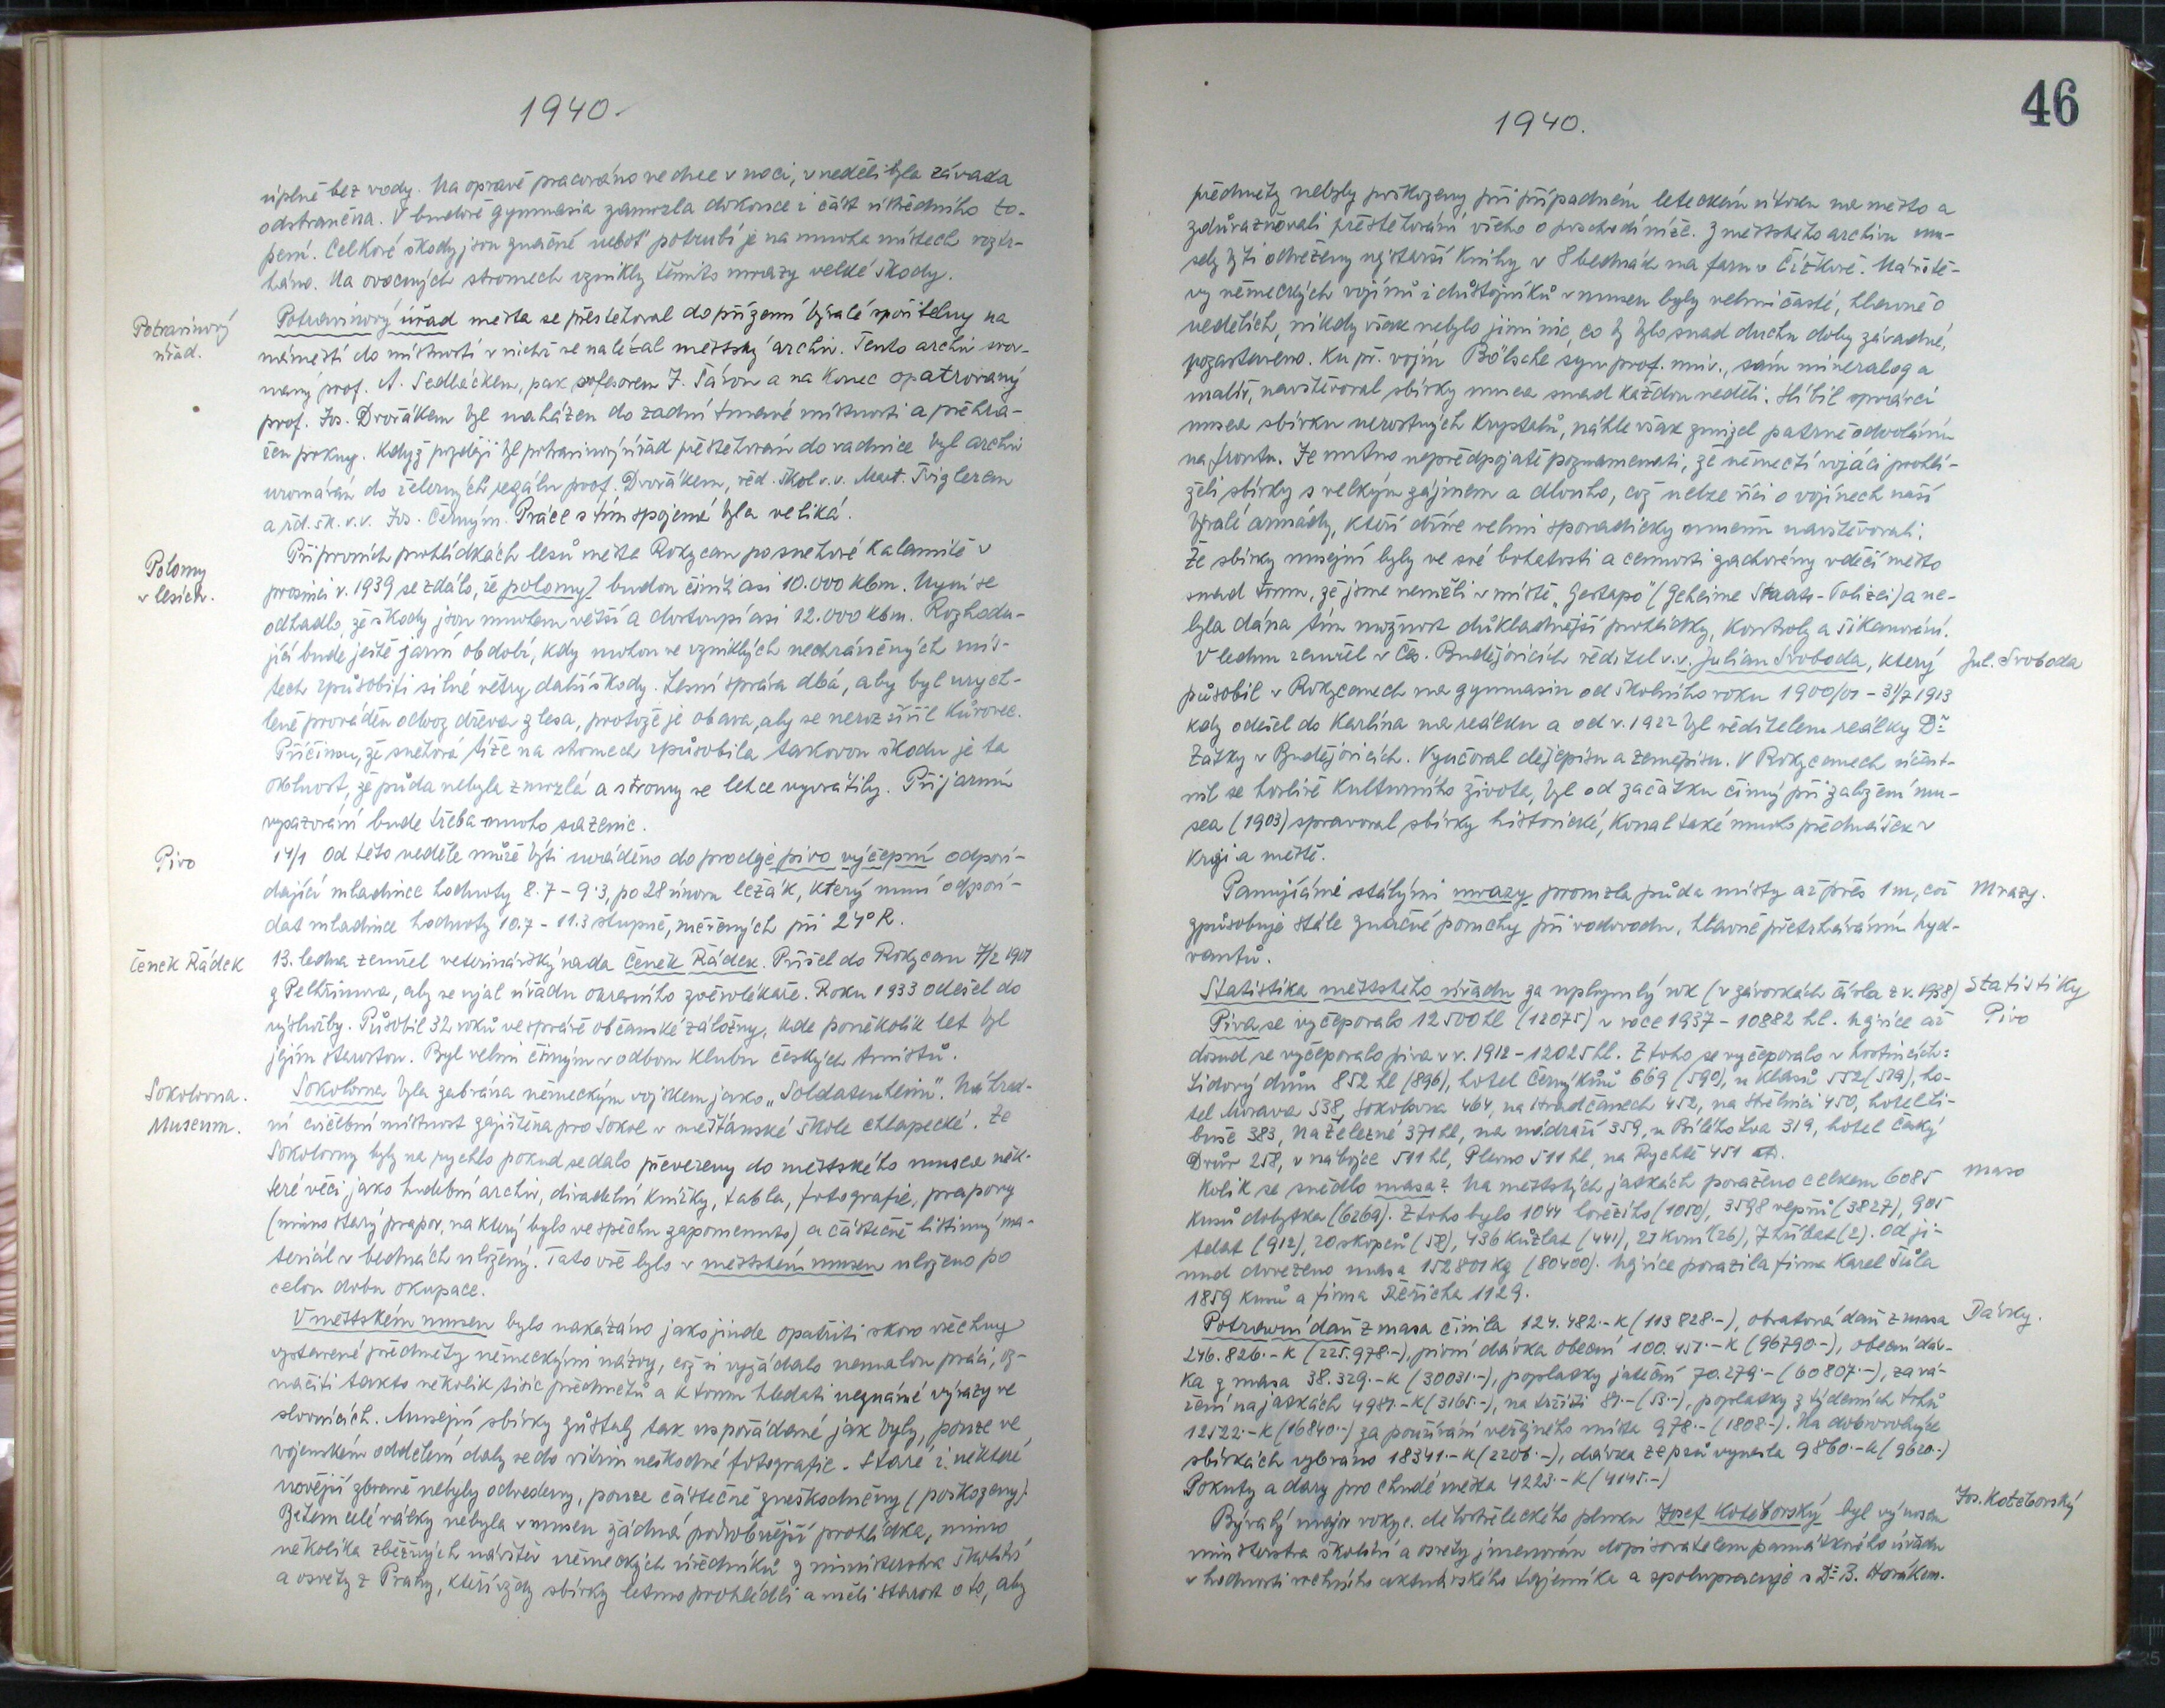 1940.
úplně bez vody. Na opravě pracováno ve dne v noci, v neděli byla závada
odstraněna. V budově gymnasia zamrzla dokonce i část ústředního to-
pení. Celkové škody jsou značné neboť potrubí je na mnoha místech roztr-
háno. Na ovocných stromech vznikly těmito mrazy velké škody.
Potravinový
úřad.
Potravinový úřad města se přestěhoval do přízemí bývalé spořitelny na
náměstí do místností v nichž se nalézal městský archiv. Tento archiv srov-
naný prof. A. Sedláčkem, pak profesorem J. Šárou a na konec opatrovaný
prof. Jos. Dvořákem byl naházen do zadní tmavé místnosti a přehra-
žen prkny. Když později byl potravinový úřad přestěhován do radnice byl archiv
urovnáván do železných regálů prof. Dvořákem, řed. škol v.v. Mart. Triglerem
a řd. šk. v.v. Jos. Černým. Práce s tím spojená byla veliká.
Polomy
v lesích.
Při prvních prohlídkách lesů města Rokycan po sněhové kalamitě v
prosinci r. 1939 se zdálo, že polomy budou činit asi 10.000 kbm. Nyní se
odhadlo, že škody jsou mnohem větší a dostoupí asi 12.000 kbm. Rozhodu-
jící bude ještě jarní období, kdy mohou ve vzniklých nechráněných mís-
tech způsobiti silné větry další škody. Lesní správa dbá, aby byl urych-
leně prováděn odvoz dřeva z lesa, protože je obava, aby se nerozšířil kůrovec.
Příčinou, že sněhová tíže na stromech způsobila takovou škodu je ta
okolnost, že půda nebyla zmrzlá a stromy se lehce vyvrátily. Při jarním
vypazování bude třeba mnoho sazenic.
Pivo
14/1 Od této neděle může býti uváděno do prodeje pivo výčepní odpoví-
dající mladince hodnoty 8.7 - 9.3, po 28 únoru ležák, který musí odpoví-
dat mladince hodnoty 10.7 - 11.3 stupně, měřených při 24° R.
Čeněk Řádek
13. ledna zemřel veterinářský rada Čeněk Řádek. Přišel do Rokycan 7/2 1901
z Pelhřimova, aby se ujal úřadu okresního zvěrolékaře. Roku 1933 odešel do
výslužby. Působil 32 roků ve správě občanské záložny, kde po několik let byl
jejím starostou. Byl velmi činným v odboru klubu českých turistů.
Sokolovna.
Museum.
Sokolovna byla zabrána německým vojskem jako „Soldatenheim“. Náhrad-
ní cvičební místnost zajištěna pro Sokol v měšťanské škole chlapecké. Ze
Sokolovny byly na rychlo pokud se dalo převezeny do městského musea něk-
teré věci jako hudební archiv, divadelní knížky, tabla, fotografie, prapory
(mimo starý prapor, na který bylo ve spěchu zapomenuto) a částečně listinný ma-
teriál v bednách uložený. Tato vše bylo v městském museu uloženo po
celou dobu okupace.
V městském museu bylo nakázáno jako jinde opatřiti skoro všechny
vystavené předměty německými názvy, což si vyžádalo nemalou práci, oz-
načiti takto několik tisíc předmětů a k tomu hledati neznámé výrazy ve
slovnících. Musejní sbírky zůstaly tak uspořádané jak byly, pouze ve
vojenském oddělení daly se do vitrin neškodné fotografie. Staré i některé
novější zbraně nebyly odvedeny, pouze částečně zneškodněny (poškozeny).
Během celé války nebyla v museu žádná podrobnější prohlídka, mimo
několika zběžných návštěv německých úředníků z ministerstva školství
a osvěty z Prahy, kteří vždy sbírky letmo prohlédli a měli starost o to, aby
46
1940.
předměty nebyly poškozeny při případném leteckém útoku na město a
zdůrazňovali přestěhování všeho o poschodí níže. Z městského archivu mu-
sely býti odvezeny nejstarší knihy v 8 bednách na faru v Čížkově. Návště-
vy německých vojínů i důstojníků v museu byly velmi časté, hlavně o
nedělích, nikdy však nebylo jimi nic, co by bylo snad duchu doby závadné,
pozastaveno. Ku př. vojín Bölsche syn prof. univ., sám mineralog a
malíř, navštěvoval sbírky musea snad každou neděli. Slíbil správci
musea sbírku nerostných krystalů, náhle však zmizel patrně odvoláním
na frontu. Je nutno nepředpojatě poznamenati, že němečtí vojáci prohlí-
želi sbírky s velkým zájmem a dlouho, což nelze říci o vojínech naší
bývalé armády, kteří dříve velmi sporadicky museum navštěvovali.
Že sbírky musejní byly ve své bohatosti a cennosti zachovány vděčí město
snad tomu, že jsme neměli v místě „Gestapo“ (Geheime Staats-Polizei) a ne-
byla dána tím možnost důkladnější prohlídky, kontroly a šikanování.
Jul. Svoboda
V lednu zemřel v Čes. Budějovicích ředitel v.v. Julian Svoboda, který
působil v Rokycanech na gymnasiu od školního roku 1900/01 - 31/7 1913
kdy odešel do Karlína na reálku a od r. 1922 byl ředitelem reálky Dr
Zátky v Budějovicích. Vyučoval dějepisu a zeměpisu. V Rokycanech účast-
nil se horlivě kulturního života, byl od začátku činný při založení mu-
sea (1903) spravoval sbírky historické, konal také mnoho přednášek v
kraji a městě.
Mrazy.
Panujícími stálými mrazy promrzla půda místy až přes 1 m, což
způsobuje stále značné poruchy při vodovodu, hlavně přetrháváním hyd-
rantů.
Statistiky
Statistika městského úřadu za uplynulý rok (v závorkách čísla z r. 1938)
Pivo
Piva se vyčepovalo 12500 hl (12075) v roce 1937 - 10882 hl. Nejvíce až
dosud se vyčepovalo piva v r. 1912 - 12025 hl. Z toho se vyčepovalo v hostincích:
Lidový dům 852 hl (896), hotel Černý kůň 669 (590), u Klasů 552 (519), ho-
tel Morava 538, Sokolovna 464, na Hradčanech 452, na Střelnici 450, hotel Li-
buše 383, Na Železné 371 hl, na nádraží 359, u Bílého lva 319, hotel Český
Dvůr 258, v nábojce 511 hl, Plevno 511 hl, na Rychtě 451
maso
Kolik se snědlo masa? Na městských jatkách poraženo celkem 6085
kusů dobytka (6269). Z toho bylo 1044 hovězího (1050), 3598 vepřů (3827), 905
telat (912), 20 skopců (58), 436 kůzlat (441), 25 koní (26), 7 hříbat (2). Od ji-
nud dovezeno masa 152801 kg (80400). Nejvíce porazila firma Karel Tůla
1859 kusů a firma Řeřicha 1129.
Dávky.
Potravní daň z masa činila 124.482.-K (113828.-), obratová daň z masa
246.826.-K (225.978.-), pivní dávka obecní 100.451.-K (96790.-), obecní dáv-
ka z masa 38.329.-K (30031.-), poplatky jateční 70.279.- (60807.-), za vá-
žení na jatkách 4981.-K (3165.-), na tržišti 81.- (53.-), poplatky z týdenních trhů
12522.-K (16840.-) za používání veřejného místa 978.- (1808.-). Na dobrovolných
sbírkách vybráno 18341.-K (2206.-), dávka ze psů vynesla 9860.-K (9620.-)
Pokuty a dary pro chudé města 4223.-K (4145.-)
Jos. Kotěborský
Bývalý major rokyc. dělostřeleckého pluku Josef Kotěborský byl výnosem
ministerstva školství a osvěty jmenován dopisovatelem památkového úřadu
v hodnosti vrchního aktuárského tajemníka a spolupracuje s Dr B. Horákem.